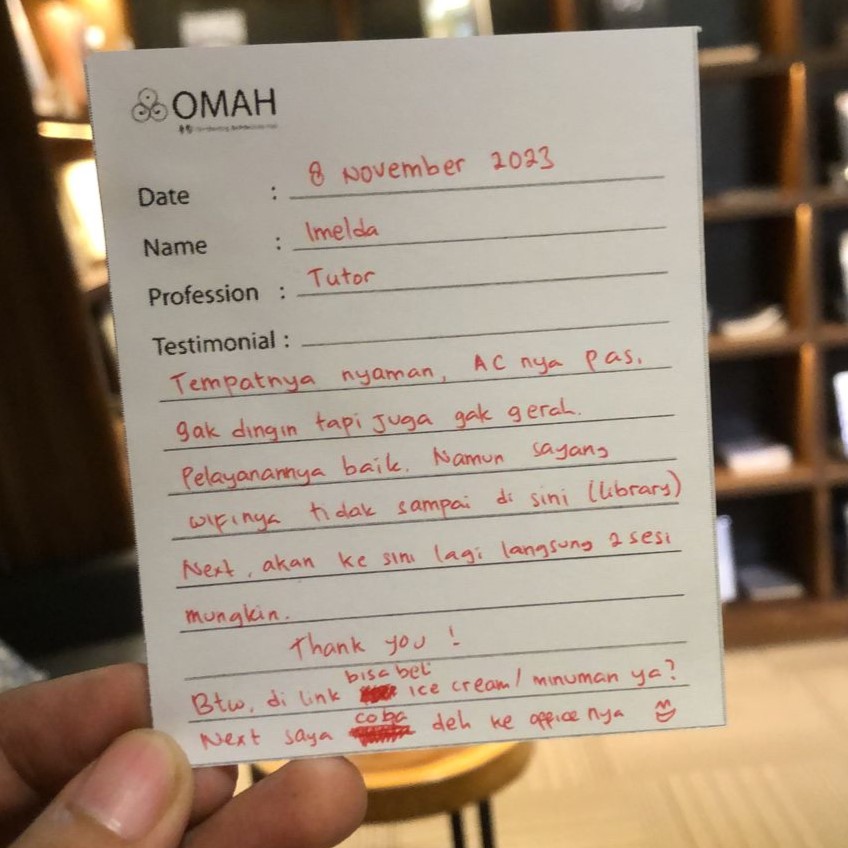 OMAH
Date : 8 November 2023
Name : Imelda
Profession : Tutor
Testimonial :
Tempatnya nyaman, AC nya pas.
gak dingin tapi juga gak gerah.
Pelayanannya baik. Namun sayang
wifinya tidak sampai di sini (library)
Next, akan ke sini lagi langsung 2 sesi
mungkin.
Thank you !
bisa beli
Btw, di link ice cream/ minuman ya?
coba
Next saya deh ke office nya